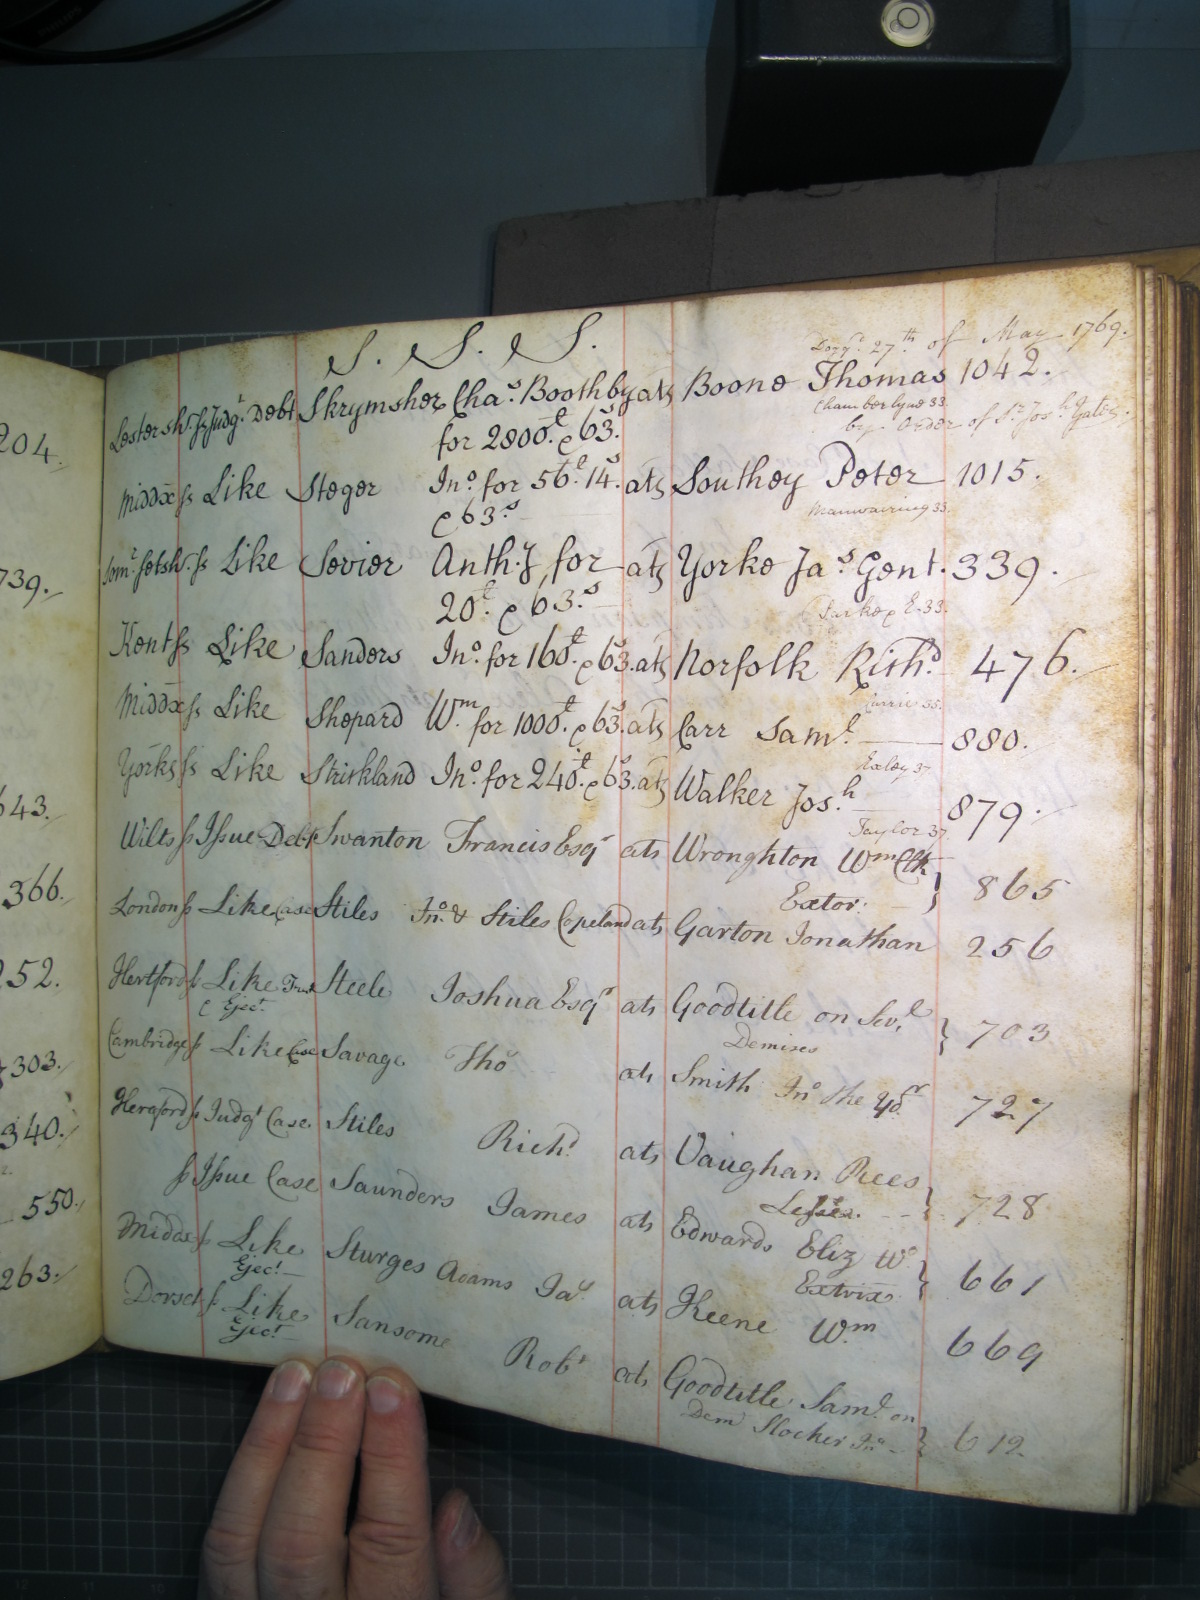 S. S. S.
Dogg.d 27.th of May 1769.
Lestersh.r ss Judg.t Debt Skrymsher Cha.s Boothby ats Boone Thomas 1042.
Chamberlyne 33.
for 2800.£ & 63.s by Order of S.r Jos.h Yates.
Middx ss Like Steger Jn.o for 56.£ 14.s ats Southey Peter 1015.
& 63.s Manwairing 33.
Som.rsetsh.r ss Like Sevier Anth.y for ats Yorke Ja.s Gent. 339.
20.£ & 63.s 33.
Kent ss Like Sanders Jn.o for 160.£ & 63.s ats Norfolk Rich.d 476.
Middx ss Like Shepard W.m for 1000.£ & 63.s ats Carr Sam.l 880.
Exley 37
Yorks ss Like Strickland Jn.o for 240.£ & 63.s ats Walker Jos.h 879.
Taylor 37.
Wilts ss Issue Debt Swanton Francis Esq.r ats Wroughton W.m Clk 865
Extor.
London ss Like Case Stiles Jn.o & Stiles Copeland ats Garton Jonathan 256
Hertford ss Like Steele Joshua Esq.r ats Goodtitle on Sev.l 703
& Eject. Demises
Cambridge ss Like Case Savage Tho.s ats Smith Jn.o the yo.r 727
Hereford ss Judg.t Case Stiles Rich.d ats Vaughan Rees 728
ss Issue Case Saunders James ats Edwards Eliz W.o 661
Extrix
Middx ss Like Sturges Adams Ja.s ats Keene W.m 669
Eject.
Dorset ss Like Sansome Rob.t ats Goodtitle Sam.l on 612
Eject. Dem Slocker Jn.o
204.
739.
643.
366.
252.
303.
340.
550.
263.